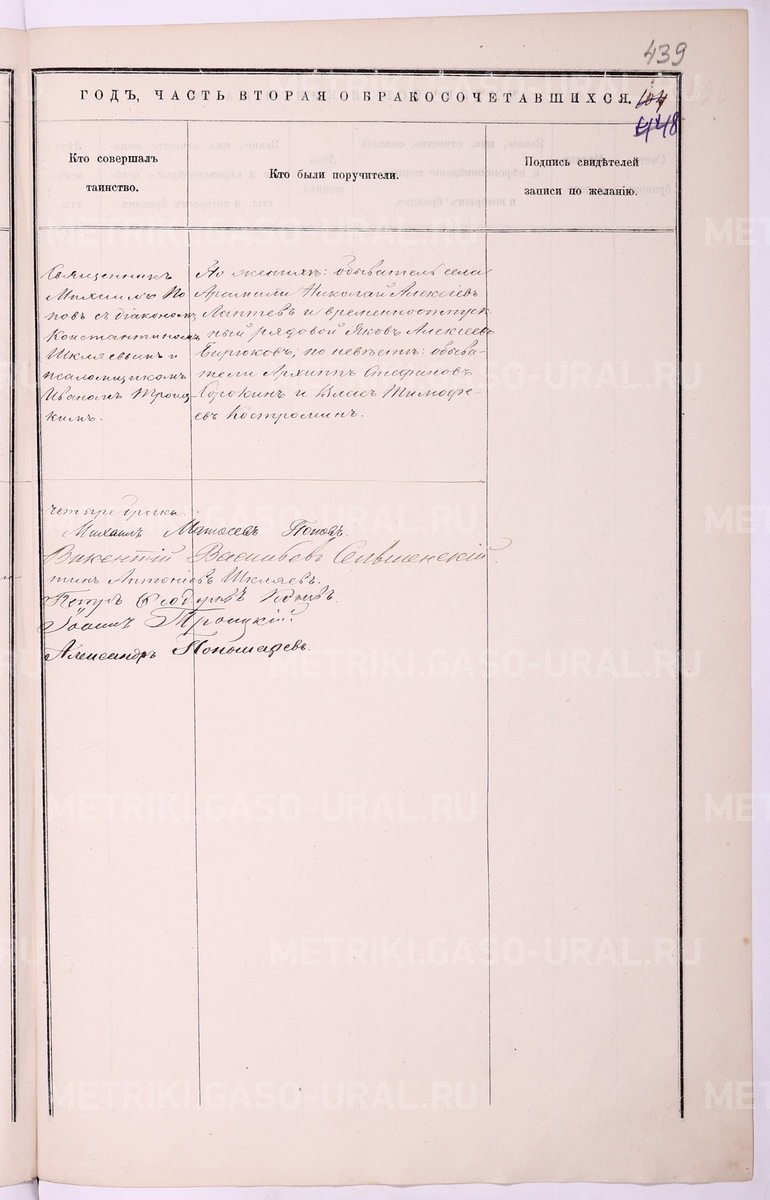 439
ГОДЪ, ЧАСТЬ ВТОРАЯ О БРАКОСОЧЕТАВШИХСЯ.
104
448
Кто совершалъ
таинство.
Кто были поручители.
Подпись свидѣтелей
записи по желанію.
Священникъ
Михаилъ По
повъ съ діакономъ
Константиномъ
Шкляевымъ и
псаломщикомъ
Иваномъ Троиц-
кимъ.
По женихѣ: обыватель села
Арамили Николай Алексѣевъ
Лаптевъ и временноотпуск
ный рядовой Яковъ Алексѣевъ
Бирюковъ; по невѣстѣ: обыва-
тели Архиппъ Стефановъ
Сорокинъ и Власъ Тимофе-
евъ Костроминъ.
четыре брака.
Михаилъ Матѳеевъ Поповъ.
Викентій Васильевъ Сельменскій.
тинъ Антоніевъ Шкляевъ.
Петръ
Іоаннъ Троицкій.
Александръ Пономаревъ.
METRIKI.GASO-URAL.RU